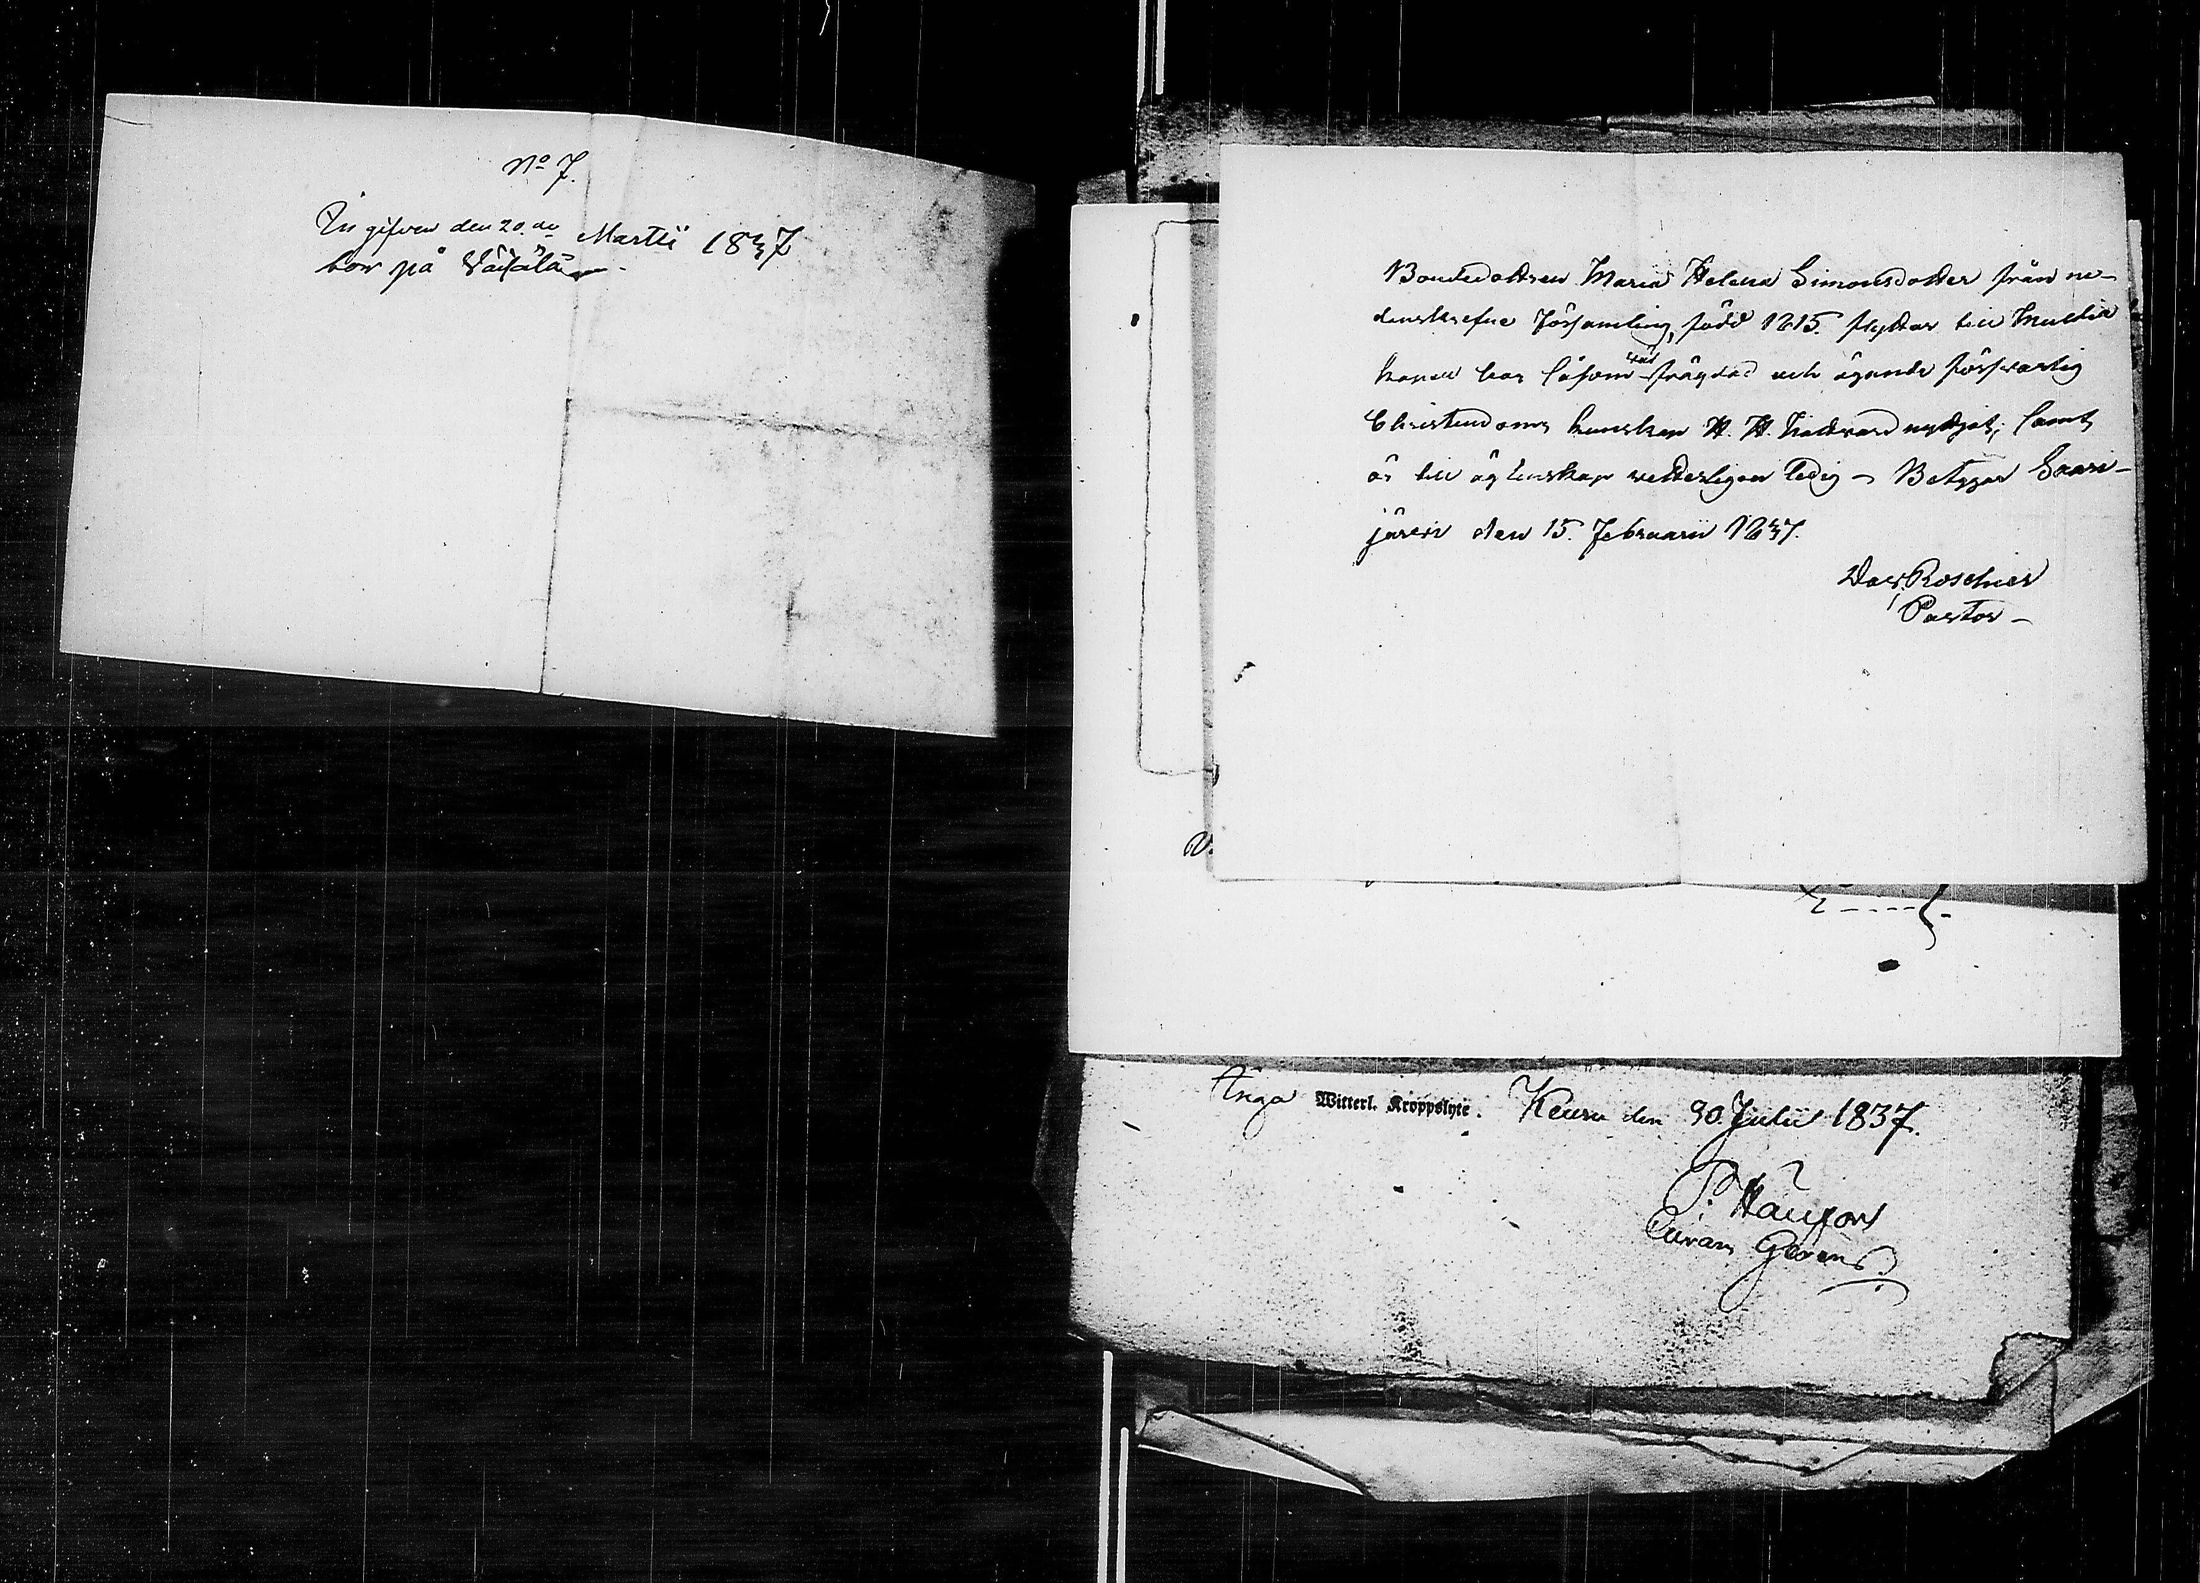 No 7.
In gifven den 20. de Martii 1837
bor på
Bondedottren Maria Helena Simonsdotter från ne-
danskrefne Församling, född 1815. flyttar till Multia
Kapell har såsom väl frägdad och ägande försvarlig
Christendoms kunskap H. H. Nattvard nyttjat, samt
är till ägtenskap vetterligen ledig – Betygar Saari-
järvi den 15. Februarii 1837.
Dav. Roschier
Pastor –
V.
Inga Witterl. Kroppslyte. Keuru den 30. Julii 1837.
P. Hällfors
Curam Gerens.